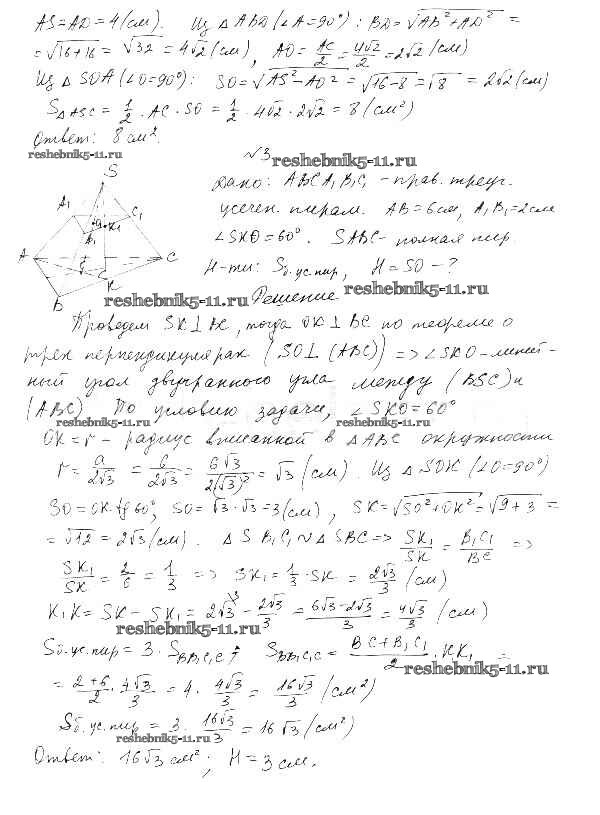 AS=AD=4(см). Из △ABD (∠A=90°): BD=√AB²+AD² =
=√16+16=√32=4√2(см), AO=AC/2=4√2/2=2√2(см)
Из △SOA(∠O=90°): SO=√AS²−AO²=√16−8=√8=2√2(см)
S△ASC=1/2·AC·SO=1/2·4√2·2√2=8(см²)
Ответ: 8см².
reshebnik5-11.ru
√3
reshebnik5-11.ru
S
A₁
C₁
K₁
B₁
A
C
B
K
Дано: ABCA₁B₁C₁ - прав. треуг.
усечен. пирам. AB=6см, A₁B₁=2см
∠SKO=60°. SABC- полная пир.
Н-ти: Sб.ус.пир, H=SO-?
reshebnik5-11.ru
reshebnik5-11.ru
Решение
Проведем SK⊥BC, тогда OK⊥BC по теореме о
трех перпендикулярах (SO⊥(ABC)) => ∠SKO- линей-
ный угол двугранного угла между (BSC) и
(ABC). По условию задачи, ∠SKO=60°
reshebnik5-11.ru
reshebnik5-11.ru
OK=r- радиус вписанной в △ABC окружности
r=a/2√3=6/2√3=6√3/2(√3)²=√3(см). Из △SOK(∠O=90°)
SO=OK·tg60°, SO=√3·√3=3(см), SK=√SO²+OK²=√9+3=
=√12=2√3(см). △SB₁C₁∾△SBC=> SK₁/SK=B₁C₁/BC =>
SK₁/SK=2/6=1/3 => SK₁=1/3·SK=2√3/3(см)
K₁K=SK−SK₁=2√3−2√3/3=6√3−2√3/3=4√3/3(см)
reshebnik5-11.ru
Sб.ус.пир=3·SBB₁C₁C; SBB₁C₁C=BC+B₁C₁/2·KK₁ =
reshebnik5-11.ru
=2+6/2·4√3/3=4·4√3/3=16√3/3(см²)
Sб.ус.пир=3·16√3/3=16√3(см²)
reshebnik5-11.ru
Ответ: 16√3см²; H=3см.